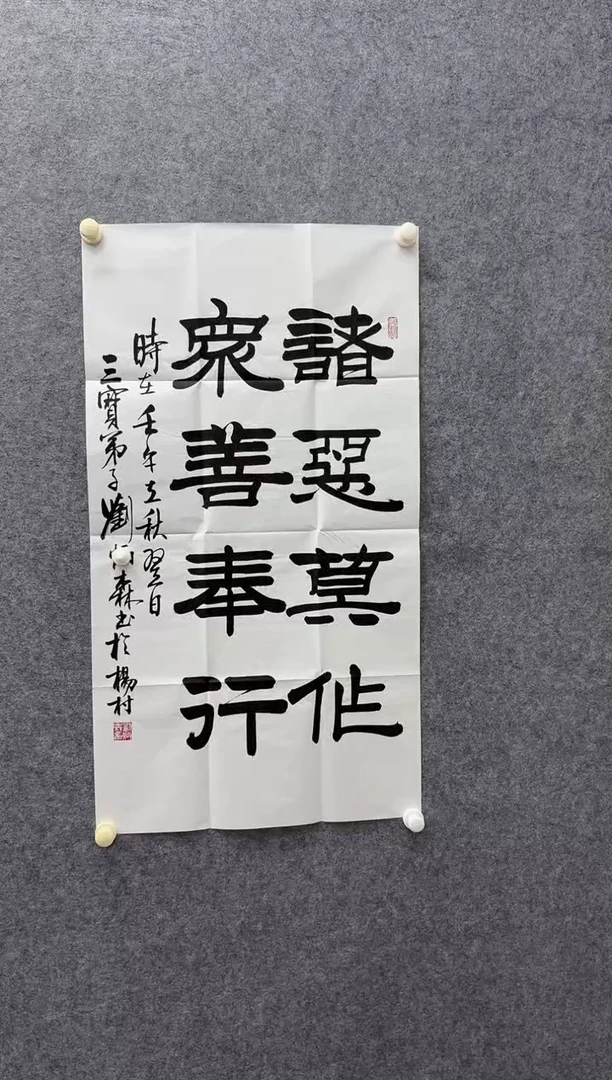 諸惡莫作
衆善奉行
時在壬午立秋翌日
三寶弟子劉 森书於楊村